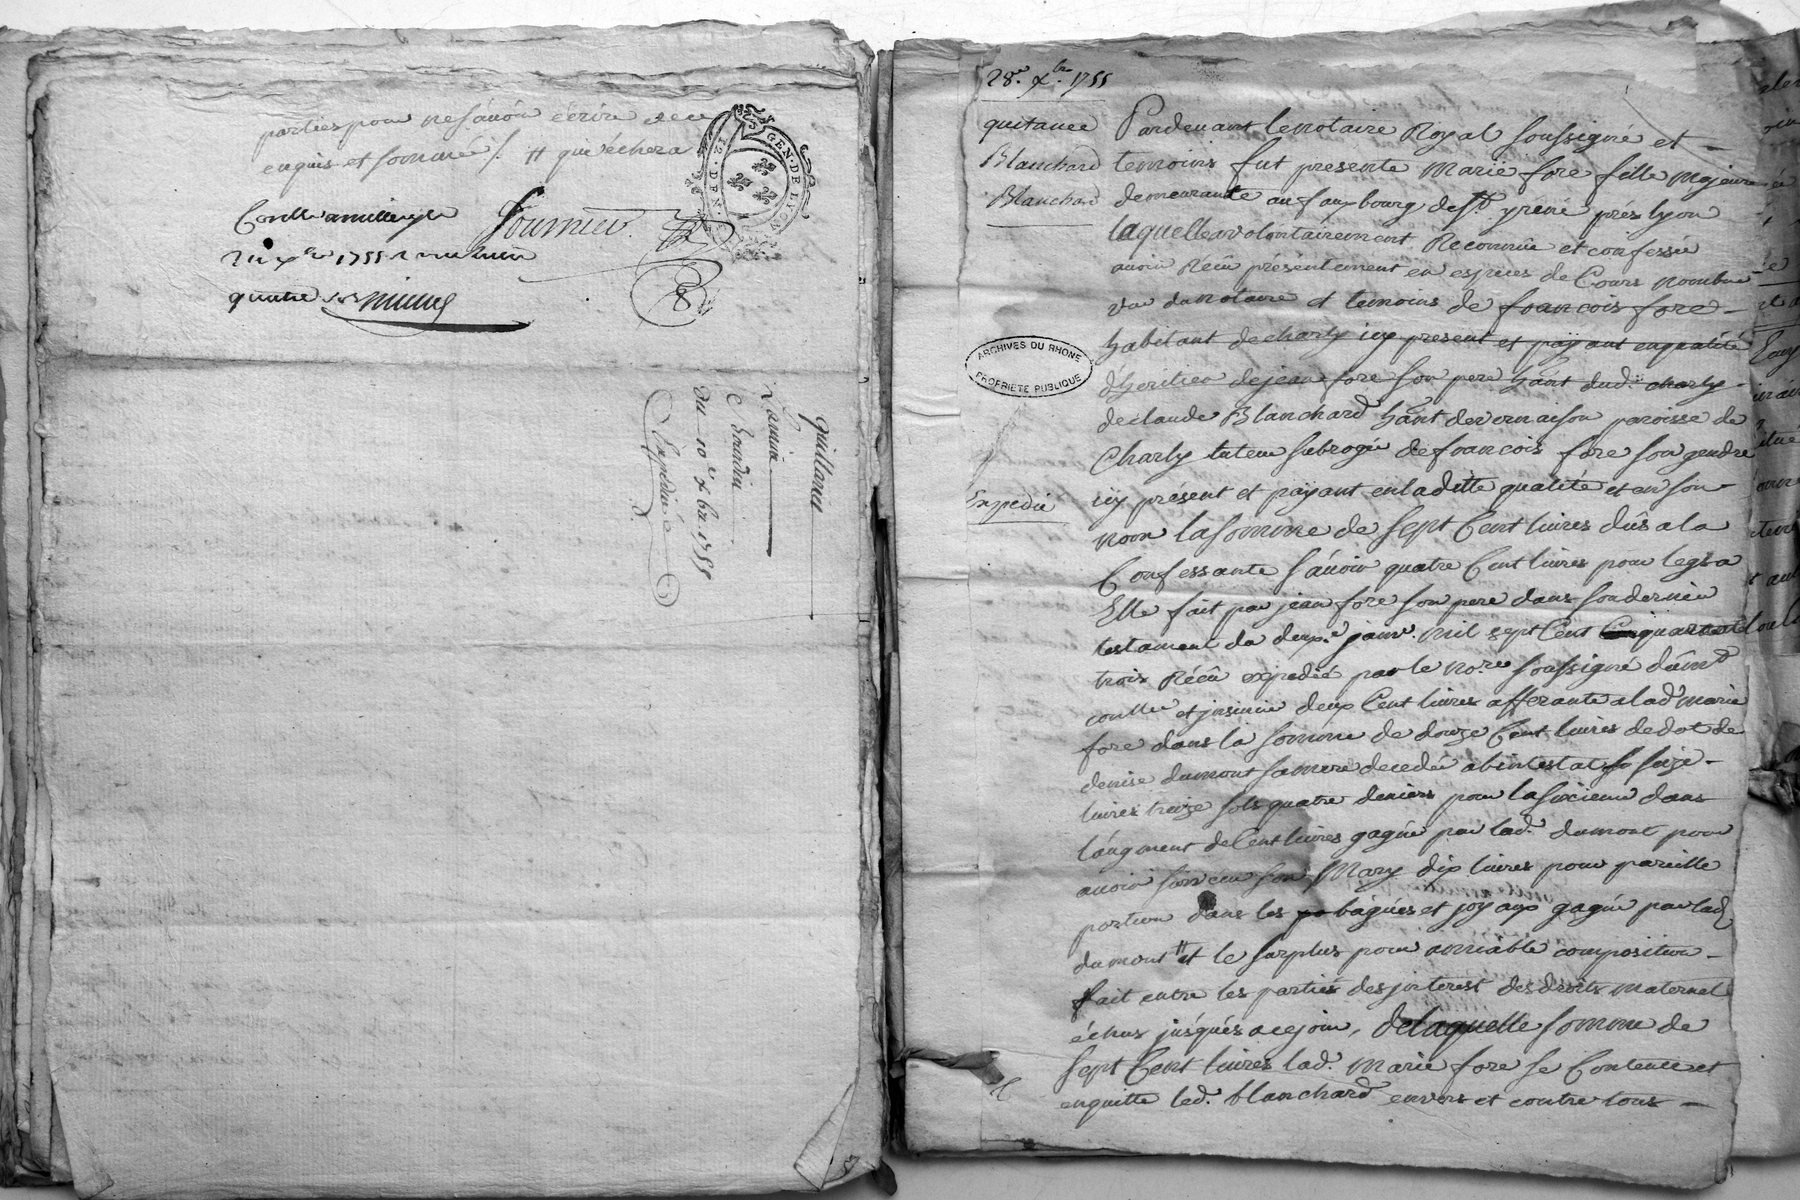 parties pour ne sáuoir écrire de ce
enquis et sommé /. # que échera
GEN. DE LYON
12. DEN.
Fournier
1755
quatre
quittance
Du 10e xbre 1755
Expediée
28e. xbr. 1755
quitance
Blanchard
Blanchard
Expedié
ARCHIVES DU RHONE
PROPRIETE PUBLIQUE
Pardeuant le notaire Royal soussigné et
temoins fut presente Marie fore fille majeure
demeurante au faux bourg de st. yrené prés lyon
laquelle a volontairement Reconnüe et confessé
auoir Reçû présentement en espéces de Cours nombrée
vüe du notaire et temoins de francois fore
habitant de charly icy present et payant enqualité
d'héritier de jean fore son pere hant. dud. charly
de claude Blanchard hant. de vernaison paroisse de
Charly tuteur subrogé de francois fore son gendre
icy présent et payant en la ditte qualité et en son
nom la somme de sept Cent liures dûs a la
Confessante sáuoir quatre Cent liures pour legs a
Elle fait par jean fore son pere dans son dernier
testament du deux.e janv. mil sept Cent quarante
trois Réçû expedié par le nore. soussigné dûmt.
conllé et jnsinüé deux Cent liures afferante a lad. marie
fore dans la somme de douze Cent liures de dot de
denise dumont sa mere decedée abintestat seize
liures treize sols quatre deniers pour la sixieme dans
láugment de Cent liures gagné par lad. dumont pour
auoir suruecu son Mary dix liures pour pareille
portion dans les bagues et joyaux gagné par lad.
dumont # et le surplus pour amiable composition
fait entre les parties des jnterest des droits maternel
échus jusqués a ce jour, de laquelle somme de
sept Cent liures lad. Marie fore se Contente et
enquitte led. blanchard envers et contre tous